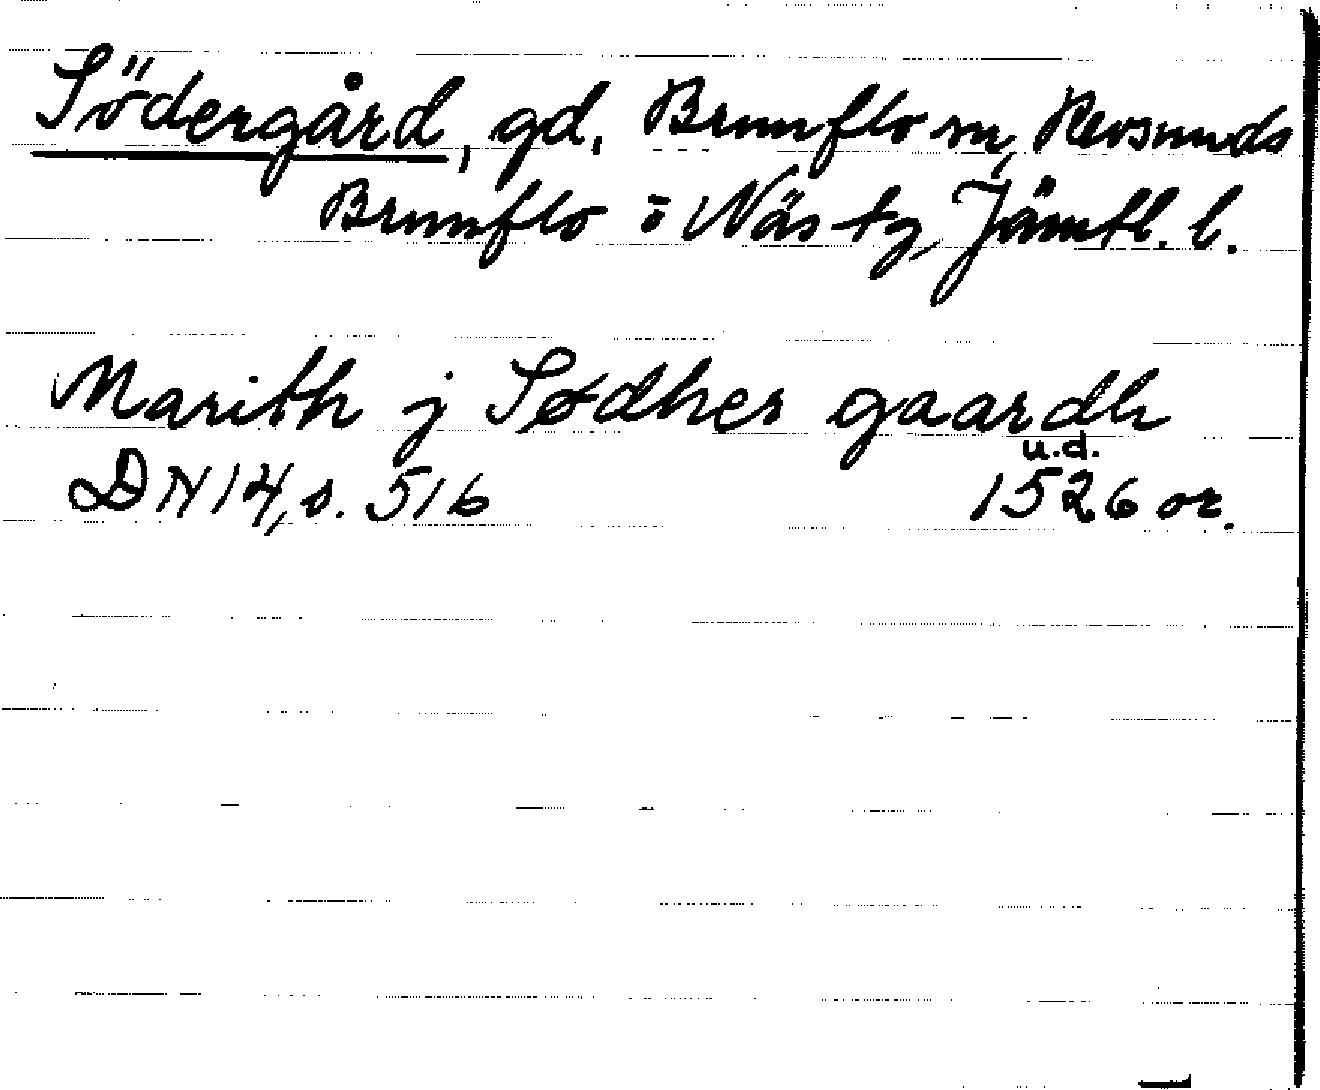 Södergård, gd, Brunflo sn, Revsunds
Brunflo o Näs tg, Jämtl. l.
Marith j Sødher gaardh
u.d.
DN 14, s. 516 1526 or.